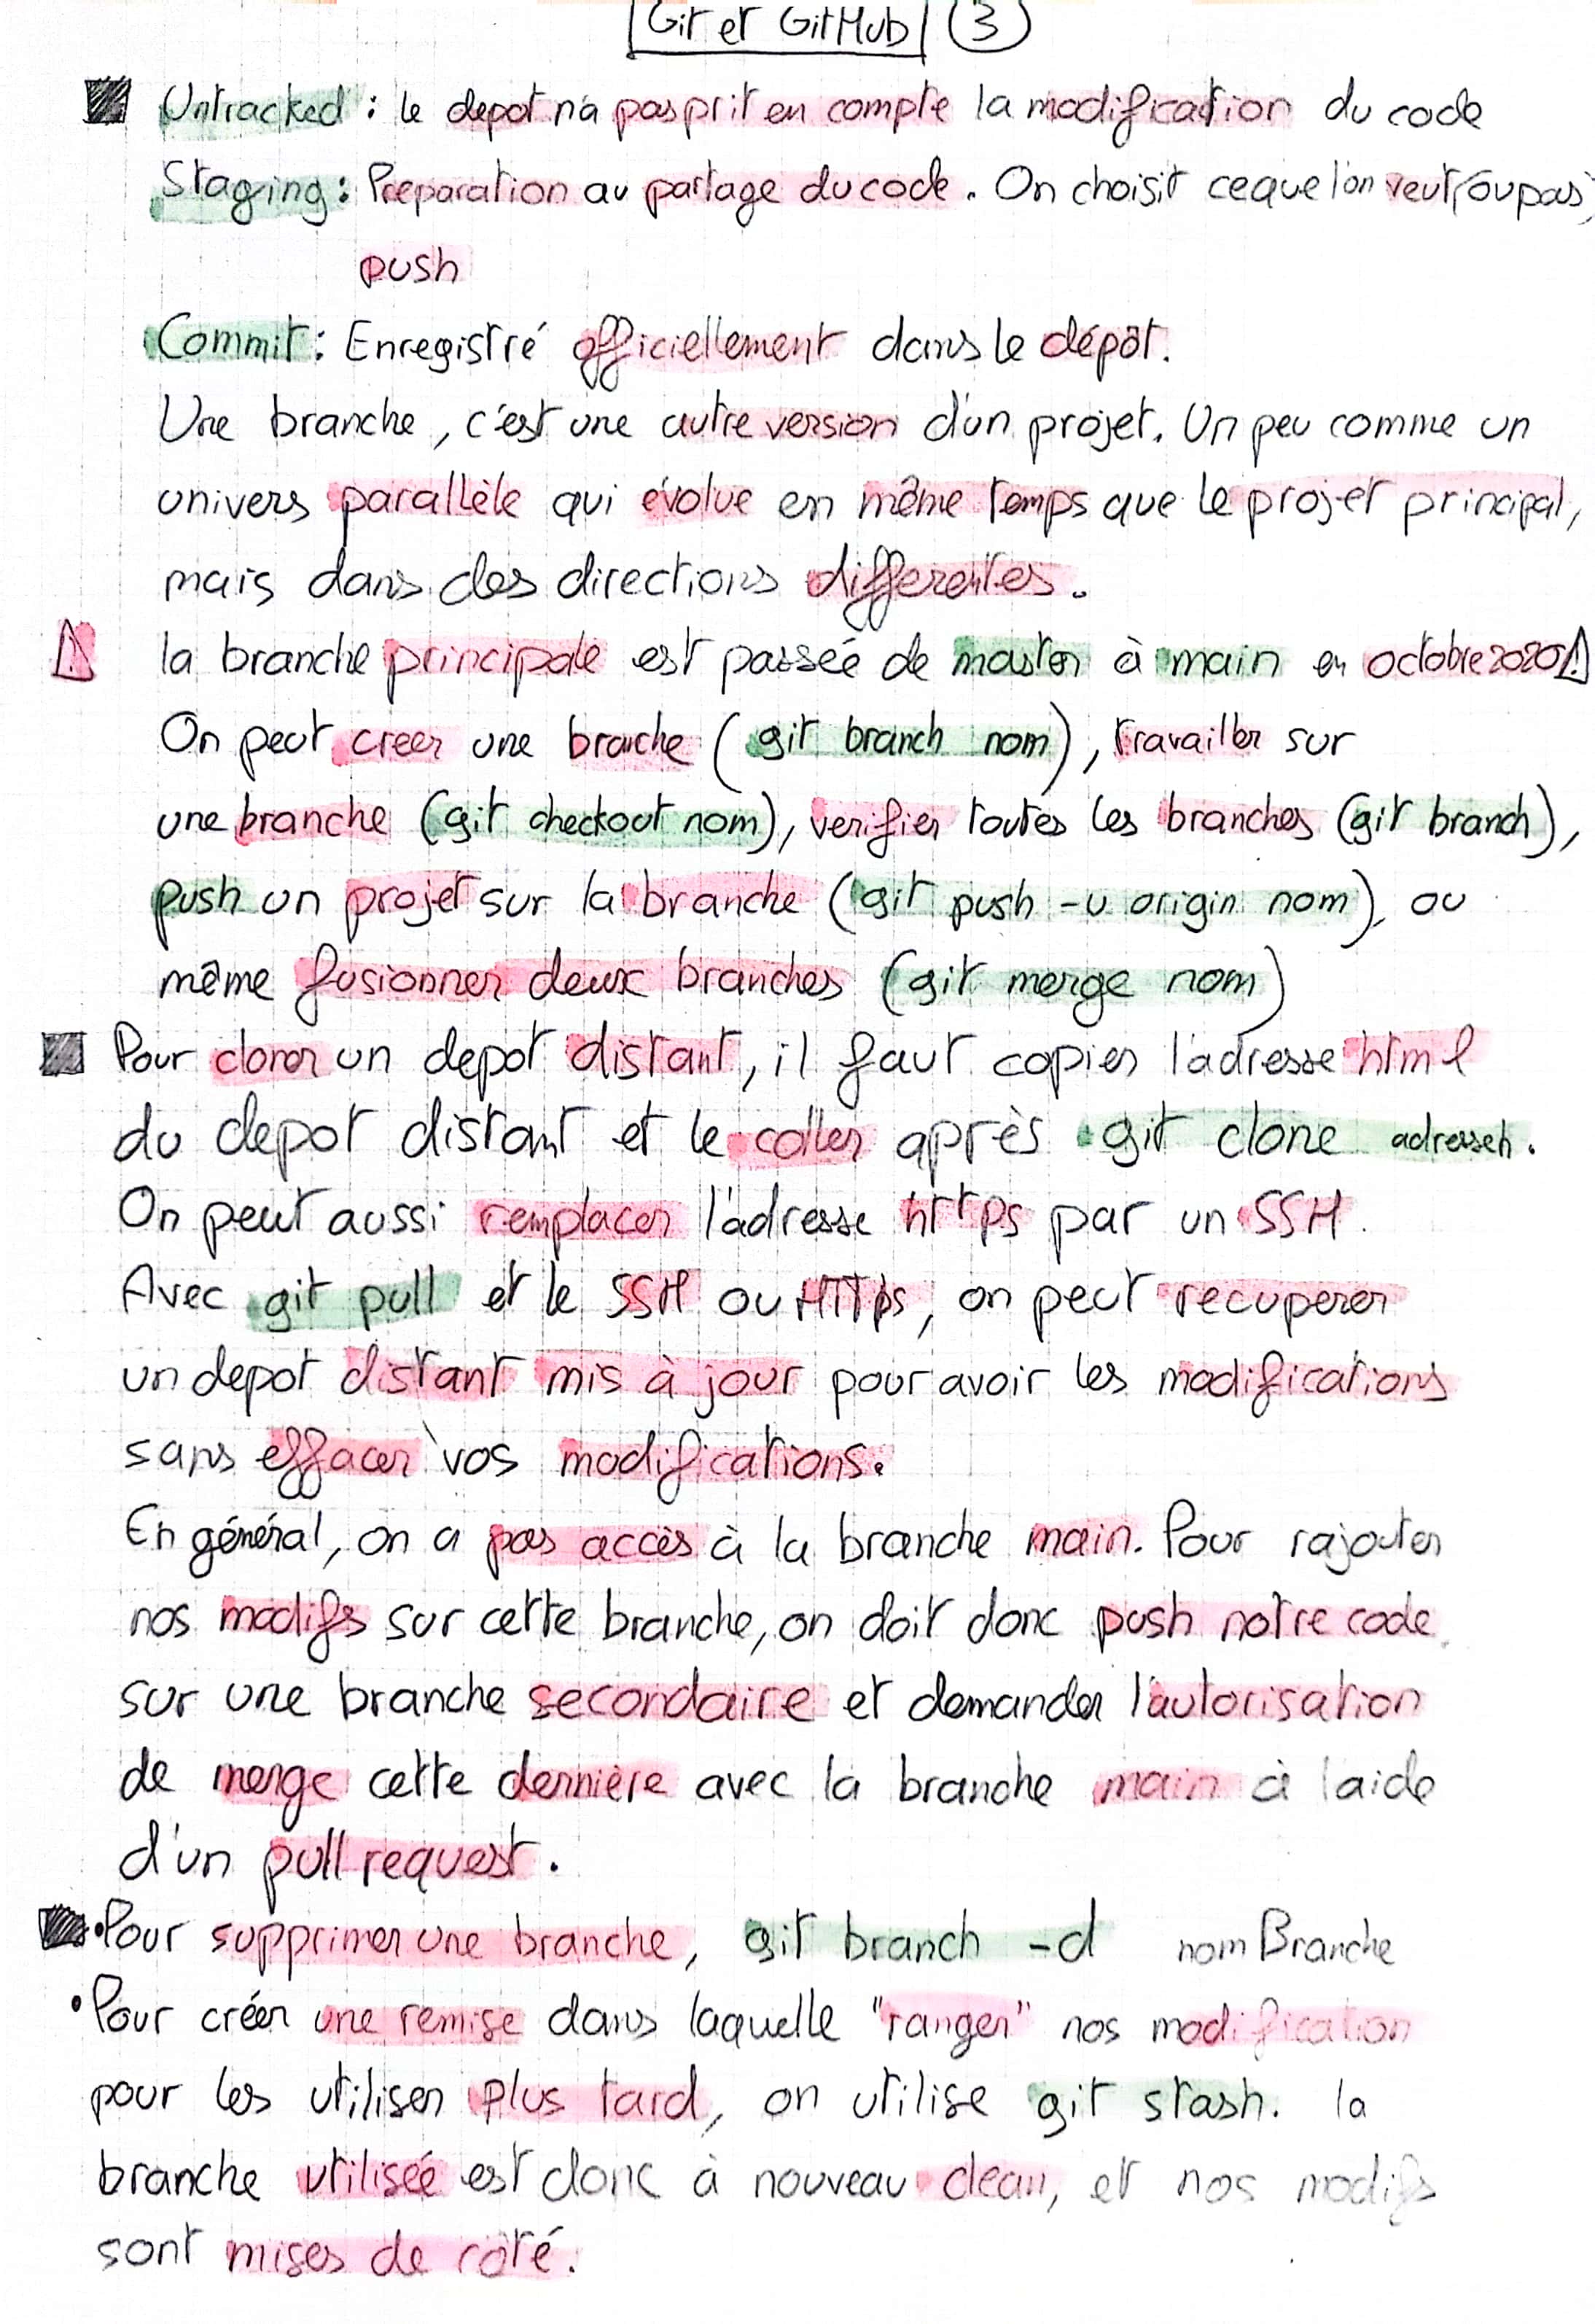 Git et GitHub 3
Untracked : le depot n'a pas prit en compte la modification du code
Staging : Preparation au partage du code. On choisit ce que l'on veut (ou pas)
push
Commit : Enregistré officiellement dans le dépôt.
Une branche, c'est une autre version d'un projet. Un peu comme un
univers parallèle qui évolue en même temps que le projet principal,
mais dans des directions differentes.
⚠ la branche principale est passée de master à main en octobre 2020 ⚠
On peut creer une branche (git branch nom), travailler sur
une branche (git checkout nom), verifier toutes les branches (git branch),
push un projet sur la branche (git push -u origin nom), ou
même fusionner deux branches (git merge nom)
Pour cloner un depot distant, il faut copier l'adresse html
du depot distant et le coller après git clone
On peut aussi remplacer l'adresse https par un SSH.
Avec git pull et le SSH ou HTTps, on peut recuperer
un depot distant mis à jour pour avoir les modifications
sans effacer vos modifications.
En général, on a pas accès à la branche main. Pour rajouter
nos modifs sur cette branche, on doit donc push notre code
sur une branche secondaire et demander l'autorisation
de merge cette dernière avec la branche main à l'aide
d'un pull request.
• Pour supprimer une branche, git branch -d nomBranche
• Pour créer une remise dans laquelle "ranger" nos modification
pour les utiliser plus tard, on utilise git stash. la
branche utilisée est donc à nouveau clean, et nos modifs
sont mises de côté.